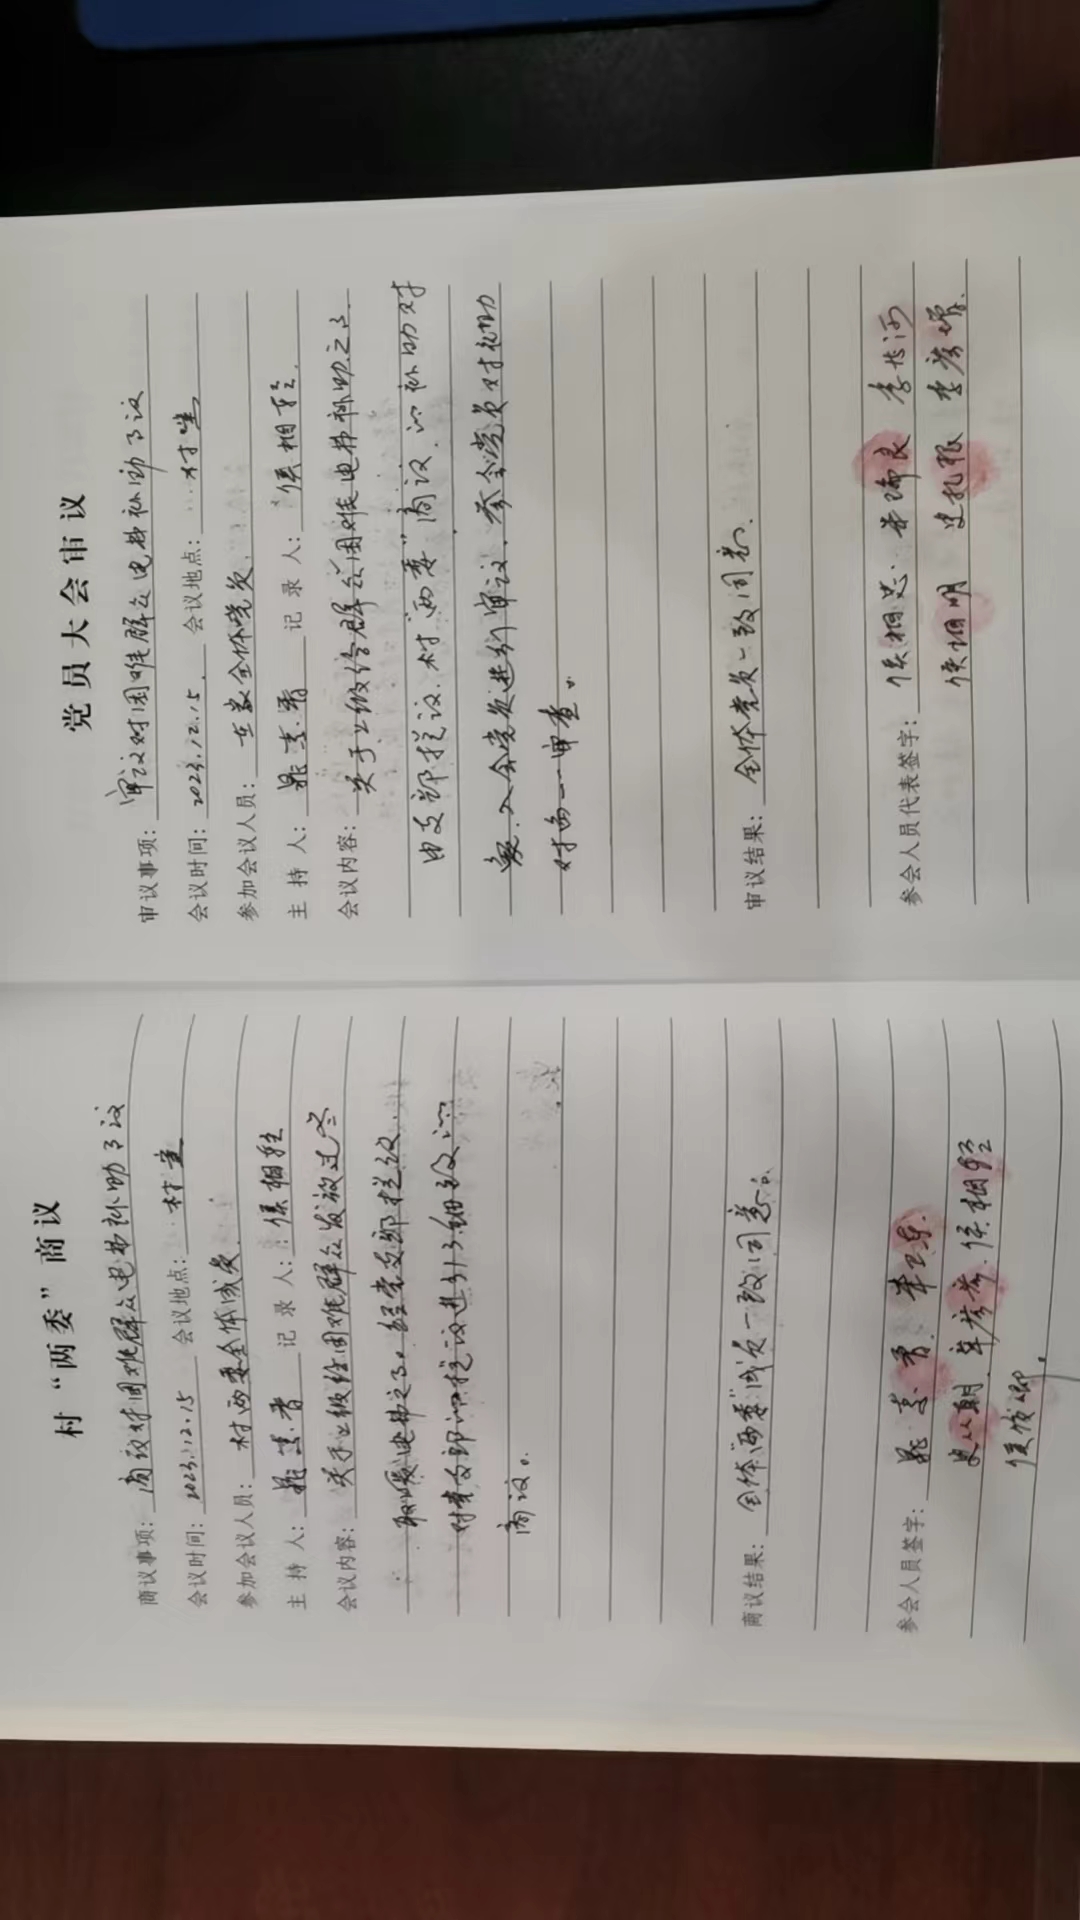 村“两委”商议
商议事项：商议对困难群众电费补助事议
会议时间：2023.12.15 会议地点：村室
参加会议人员：村两委全体成员.
主 持 人： 记 录 人：侯相轻
会议内容：关于上级给困难群众发放过冬
取暖电费之事。经党支部提议.
对党支部的提议进行了细致的
商议。
商议结果：全体“两委”成员一致同意。
参会人员签字：
侯相轻
党员大会审议
审议事项：审议对困难群众电费补助事议
会议时间：2023.12.15. 会议地点：村室
参加会议人员：在家全体党员.
主 持 人： 记 录 人：侯相轻.
会议内容：关于上级给群众困难电费补助之事.
由支部提议.村“两委”商议.的补助对
象.入会党员进行审议.参会党员对补助
对象一一审查。
审议结果：全体党员一致同意.
参会人员代表签字：侯相思. 朱瑞良
侯相明